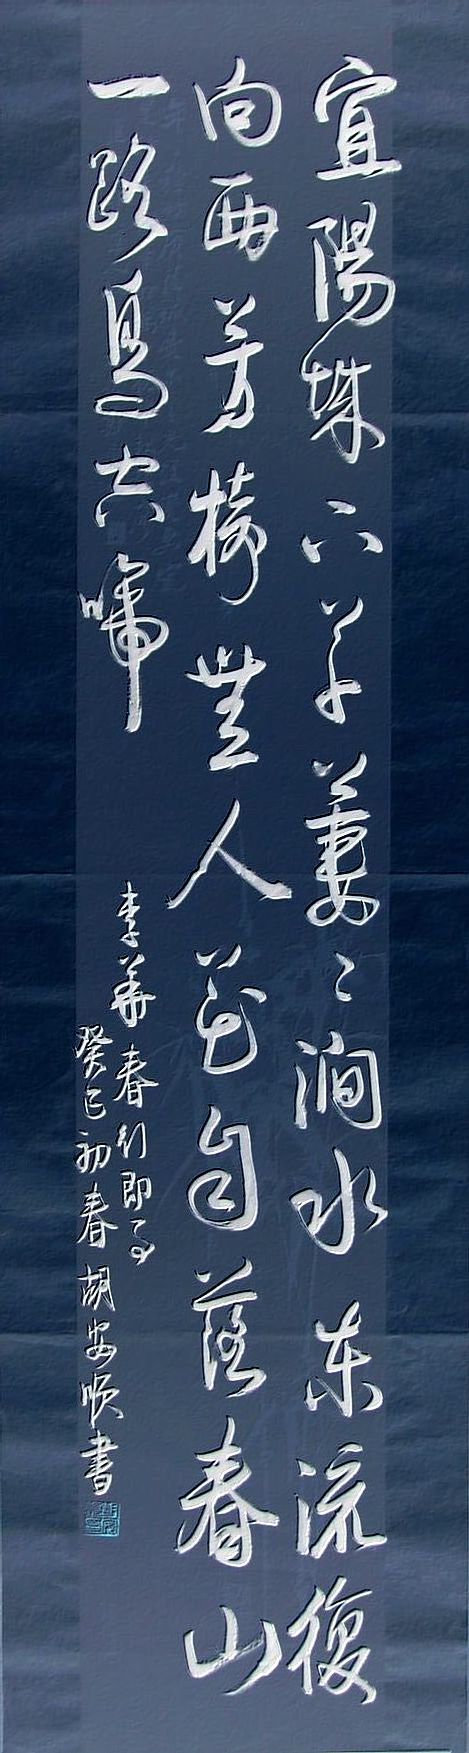 宜陽城下草萋〻澗水东流復
向西芳樹無人花自落春山
一路鳥空啼
李華春行即事
癸巳初春胡安順書